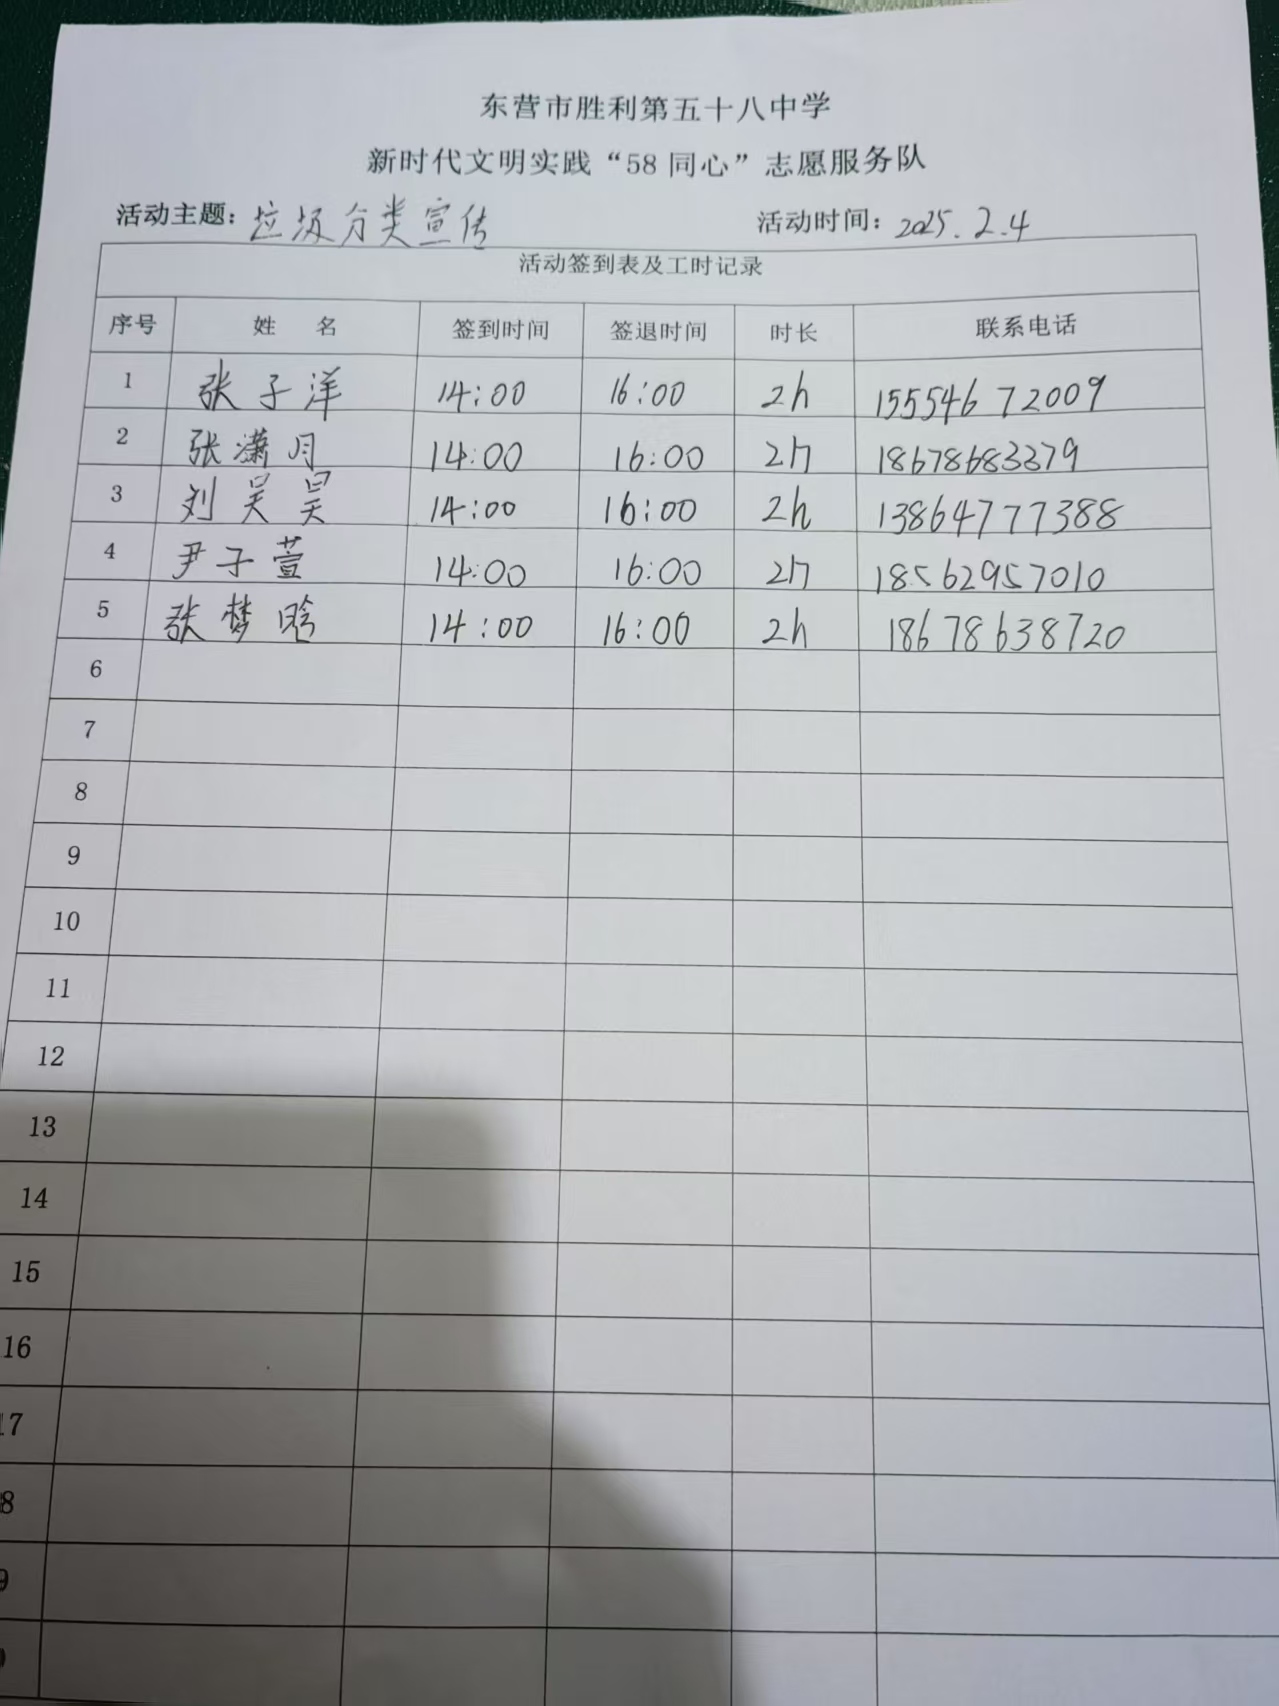 东营市胜利第五十八中学
新时代文明实践“58同心”志愿服务队
活动主题：垃圾分类宣传 活动时间：2025.2.4
活动签到表及工时记录
序号 姓 名 签到时间 签退时间 时长 联系电话
1 张子洋 14:00 16:00 2h 15554672009
2 张潇月 14:00 16:00 2h 18678683379
3 刘昊昊 14:00 16:00 2h 13864777388
4 尹子萱 14:00 16:00 2h 18562957010
5 张梦晗 14:00 16:00 2h 18678638720
6
7
8
9
10
11
12
13
14
15
16
17
8
9